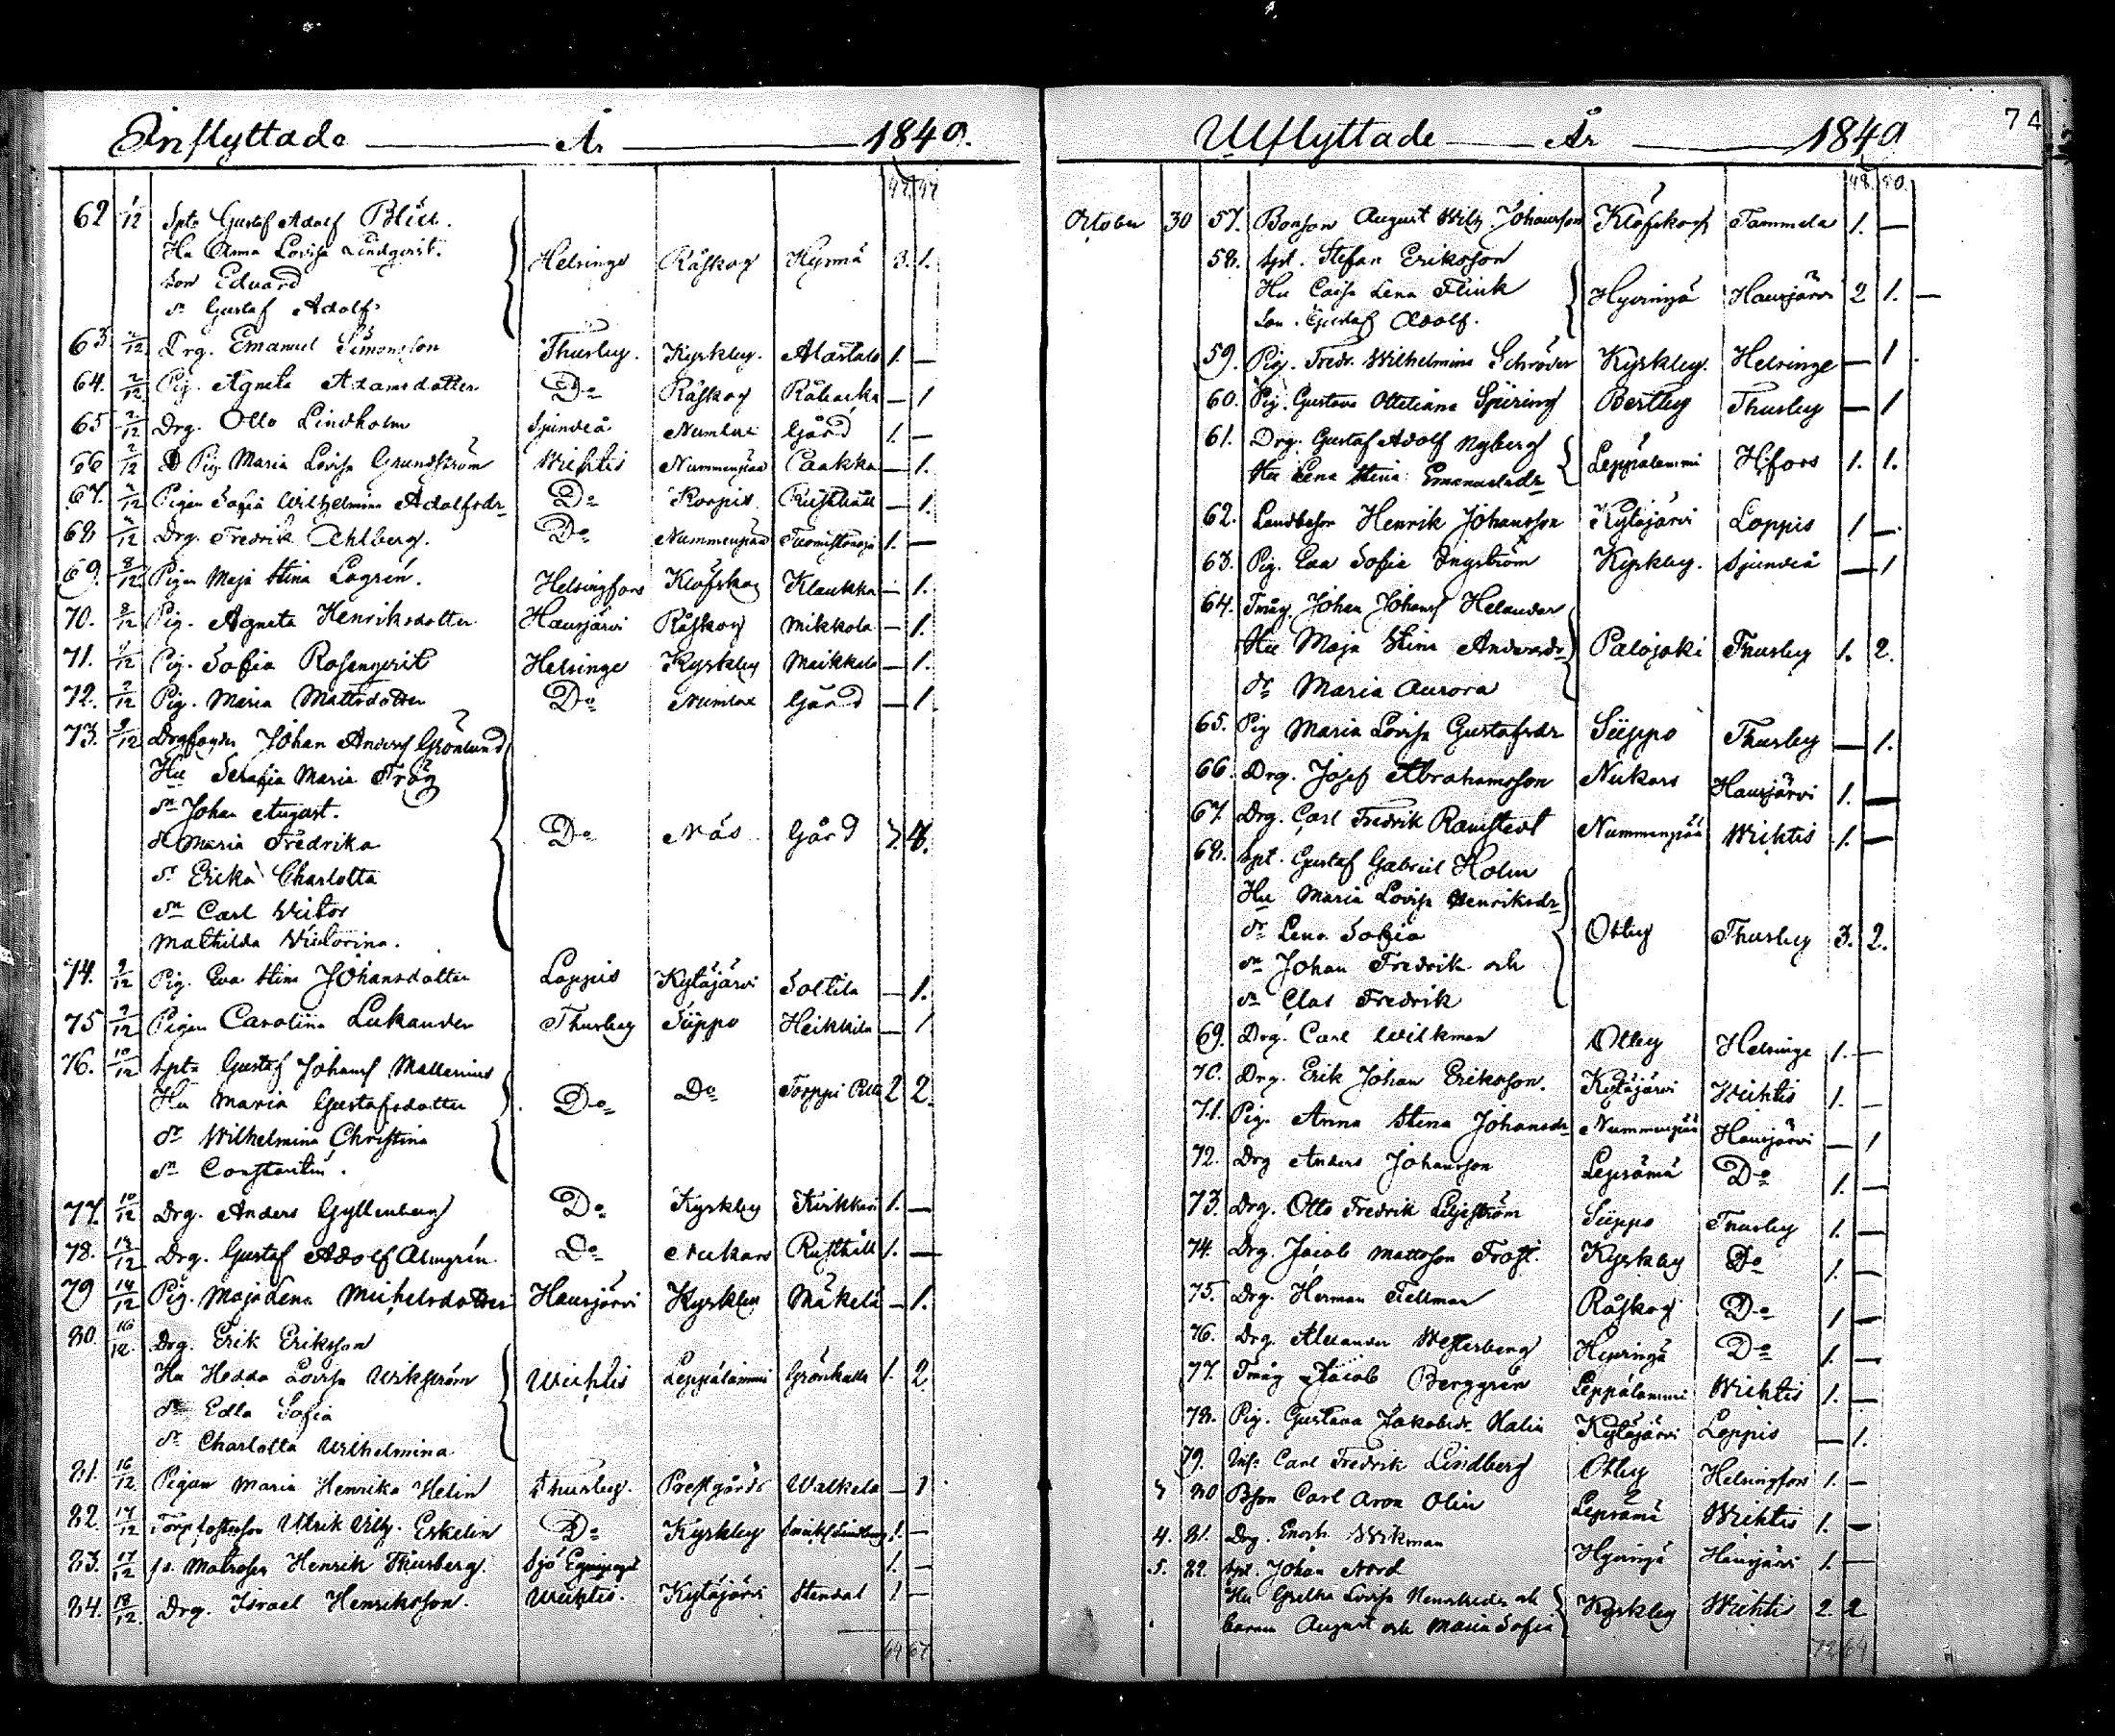 Inflyttade År 1849.
47. 47
62 1/12 Spt: Gustaf Adolf Blix.
Hu Anna Lovisa Lindqvist.
Son Eduard
Sn Gustaf Adolf
Helsinge Råskog Hyrmä 3. 1.
63 2/12 Drg. Emanuel Simonsson Thusby. Kyrkby. Alastalo 1. —
64. 2/12 Pig. Agneta Adamsdotter Do Råskog Råbacka — 1
65 2/12 Drg. Otto Lindholm Sjundeå Numlax Gård 1. —
66 2/12 Pig. Maria Lovisa Grundström Wichtis Nummenpää Caakka — 1.
67. 2/12 Pigan Sofia Wilhelmina Adolfsdr Do Korpis Rusthåll — 1.
68 2/12 Drg. Fredrik Ahlberg. Do Nummenpää 1. —
69. 8/12 Pigan Maja Stina Lagrén. Helsingfors Klöfskog Klaukka — 1.
70. 8/12 Pig. Agneta Henriksdotter Hausjärvi Råskog Mikkola — 1.
71. 9/12 Pig. Sofia Rosenqvist Helsinge Kyrkby Meikkola — 1.
72. 9/12 Pig. Maria Mattsdotter Do Numlax Gård — 1
73. 9/12 Drgfogden Johan Anders Grönlund
Hu Serafia Maria Tråg
Sn Johan August.
Dr Maria Fredrika
Dr Erika Charlotta
Sn Carl Victor
Mathilda Victorina.
Do Näs Gård 3. 4.
74. 9/12 Pig. Eva Stina Johansdotter Loppis Kytäjärvi Soltila — 1.
75 9/12 Pigan Carolina Lukander Thusby Siippo Heikkila — 1
76. 10/12 Spt: Gustaf Johans Mallenius
Hu Maria Gustafsdotter
Dr Wilhelmina Christina
Sn Constantin.
Do Do Torppi 2 2.
77. 10/12 Drg. Anders Gyllenberg Do Kyrkby Kirkkari 1. —
78. 13/12 Drg. Gustaf Adolf Almgrén Do Nukars Rusthåll 1. —
79 14/12 Pig. Maja Lena Michelsdotter Hausjärvi Kyrkby Mäkelä — 1.
80. 16/12 Drg. Erik Eriksson
Hu Hedda Lovisa Wikström
Dr Edla Sofia
Dr Charlotta Wilhelmina
Wichtis Leppälammi Grönkulla 1. 2.
81. 16/12 Pigan Maria Henrika Helin Thusby. Prestgårds Walkela — 1
82. 17/12 Ulrik Wilh. Eskelin Do Kyrkby 1. —
83. 17/12 fd. Matrosen Henrik Thusberg. Sjö 1. —
84. 18/12 Drg. Israel Henriksson. Wichtis. Kytäjärvi Stendal 1 —
64 67
74
Utflyttade År 1849
48. 50.
October 30 57. Bonson August Wilh. Johansson Klöfskog Tammela 1. —
58. Spt. Stefan Eriksson
Hu Caisa Lena Flink
Son. Gustaf Adolf.
Hyvingä Hausjärvi 2 1. —
59. Pig. Fredr. Wilhelmina Schröder Kyrkby. Helsinge — 1.
60. Pig. Gustava Ottiliana Spiring Bertby Thusby — 1
61. Drg. Gustaf Adolf Nyberg
Hu Lena Stina Emanuelsdr
Leppälammi H:fors 1. 1.
62. Landboson Henrik Johansson Kytäjärvi Loppis 1 —.
63. Pig. Eva Sofia Engström Kyrkby. Sjundeå — 1
64. Tmåg Johan Johans Helander
Hu Maja Stina Andersdr
Dr Maria Aurora
Palojoki Thusby 1. 2.
65. Pig Maria Lovisa Gustafsdr Siippo Thusby — 1.
66. Drg. Josef Abrahamsson Nukars Hausjärvi 1. —
67. Drg. Carl Fredrik Ramstedt Nummenpää Wichtis 1. —
68. Spt. Gustaf Gabriel Holm
Hu Maria Lovisa Henriksdr
Dr Lena Sofia
Sn Johan Fredrik och
Sn Clas Fredrik
Ottby Thusby 3. 2.
69. Drg. Carl Wilkman Ottby Helsinge 1. —
70. Drg. Erik Johan Eriksson. Kytäjärvi Wichtis 1. —
71. Pig. Anna Stina Johansdr Nummenpää Hausjärvi — 1
72. Drg Anders Johansson Lepsämä Do 1. —
73. Drg. Otto Fredrik Liljeström Siippo Thusby 1. —
74. Drg. Jacob Mattsson Frost. Kyrkby Do 1. —
75. Drg. Herman Fellman Råskog Do 1 —
76. Drg. Alexander Westerberg Hyvingä Do 1. —
77. Tmåg Jacob Berggrén Leppälammi Wichtis 1. —
78. Pig. Gustava Jakobsdr Halin Kytäjärvi Loppis — 1.
79. Inh: Carl Fredrik Lindberg Ottby Helsingfors 1. —
80 Bson Carl Aron Olin Lepsämä Wichtis 1. —
4. 81. Drg. Enock Wikman Hyvingä Hausjärvi 1. —
5. 82. Spt. Johan Nord
Hu Gretha Lovisa och
barnen August och Maria Sofia
Kyrkby Wichtis 2. 2
72 64